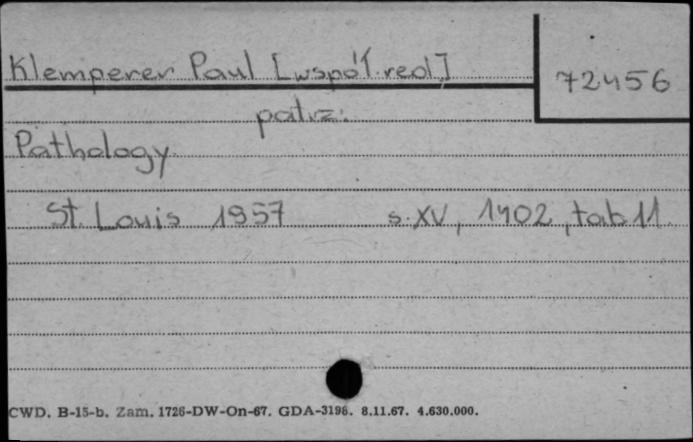 Klemperer Paul [współ.red.]
72456
patrz:
Pathology
St. Louis 1957 s. XV, 1402, tab 11.
CWD. B-15-b. Zam. 1726-DW-On-67. GDA-3198. 8.11.67. 4.630.000.